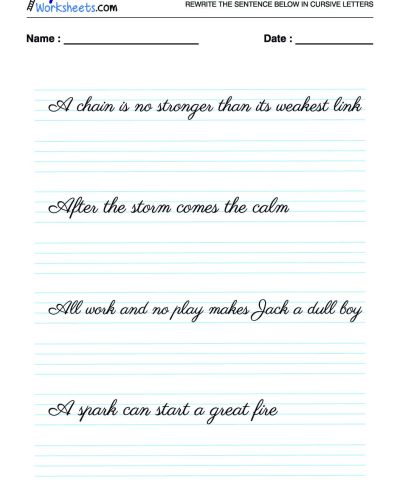 Worksheets.com
REWRITE THE SENTENCE BELOW IN CURSIVE LETTERS
Name : Date :
A chain is no stronger than its weakest link
After the storm comes the calm
All work and no play makes Jack a dull boy
A spark can start a great fire